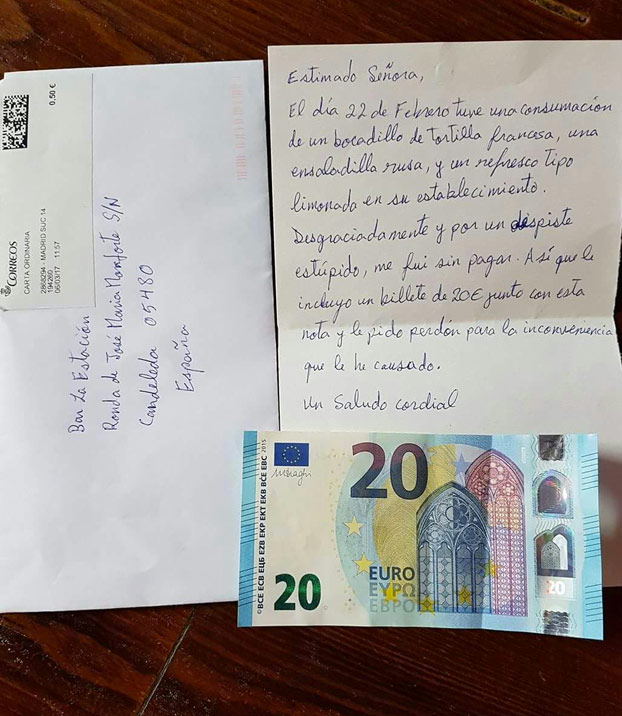 0,50 €
Correos
CARTA ORDINARIA
2868294 - MADRID SUC.14
194260
06/03/17 11:57
Bar La Estación
Ronda de José Maria Monforte S/N
Candeleda 05480
España
Estimado Señora,
El día 22 de Febrero tuve una consumación
de un bocadillo de tortilla francesa, una
ensaladilla rusa, y un refresco tipo
limonada en su establecimiento.
Desgraciadamente y por un despiste
estúpido, me fui sin pagar. Así que le
incluyo un billete de 20€ junto con esta
nota y le pido perdón para la inconveniencia
que le he causado.
Un Saludo cordial
©BCE ECB ЕЦБ EZB EKP EKT EKB BĊE EBC 2015
20
20
EURO
ΕΥΡΩ
ЕВРО
20